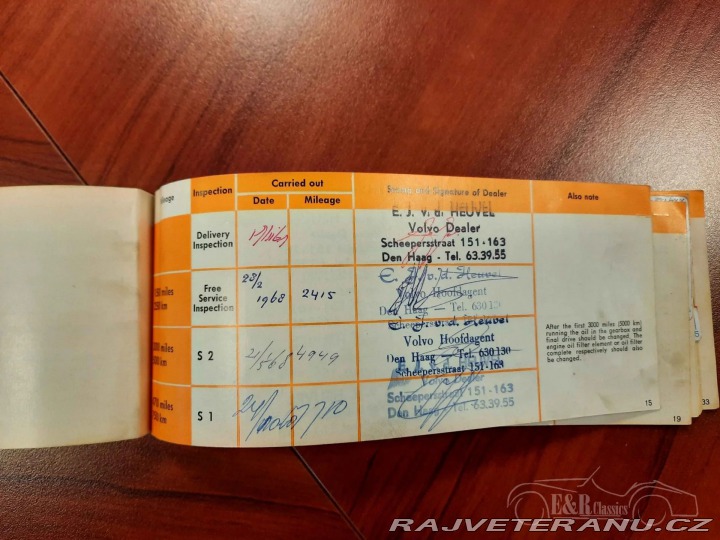 Inspection
Carried out
Date
Mileage
Stamp and Signature of Dealer
Also note
Delivery
Inspection
E. J. v. d. HEUVEL
Volvo Dealer
Scheepersstraat 151-163
Den Haag - Tel. 63.39.55
Free
Service
Inspection
23/2
1968
2415
E. J. v. d. Heuvel
Volvo Hoofdagent
Den Haag — Tel. 630130
miles
km
S 2
4949
E. J. v. d. Heuvel
Volvo Hoofdagent
Den Haag — Tel. 630130
Scheepersstraat 151-163
After the first 3000 miles (5000 km)
running the oil in the gearbox and
final drive should be changed. The
engine oil filter element or oil filter
complete respectively should also
be changed.
miles
km
S 1
Volvo Dealer
Scheepersstraat 151-163
Den Haag - Tel. 63.39.55
15
19
33
E&R Classics
RAJVETERANU.CZ